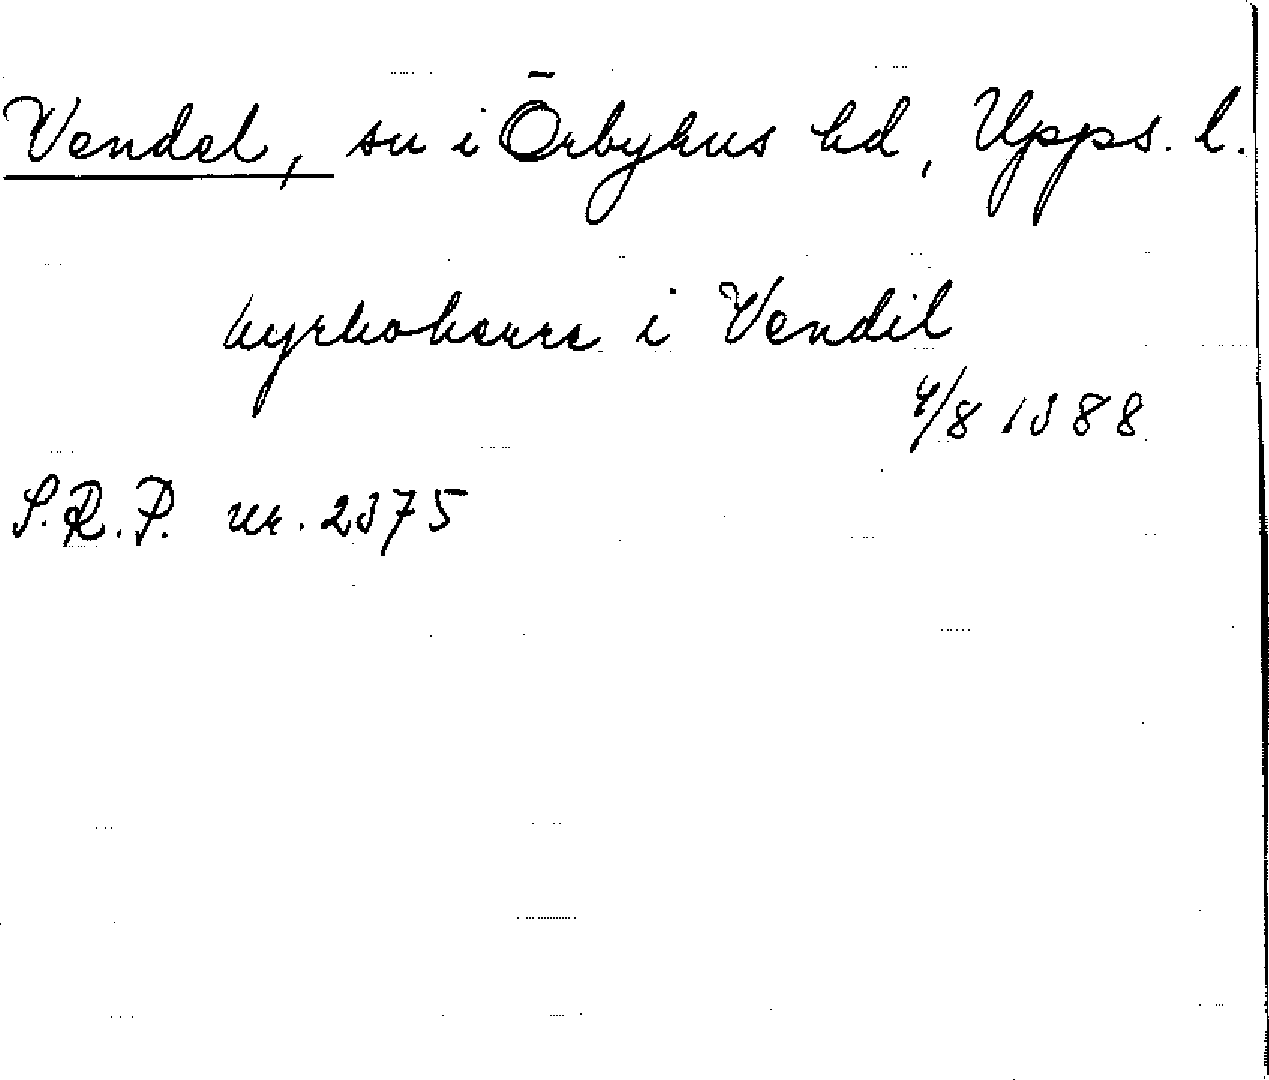 Vendel, sn i Örbyhus hd, Upps. l.
kyrkoherre i Vendil
4/8 1388
S.R.P. nr. 2375